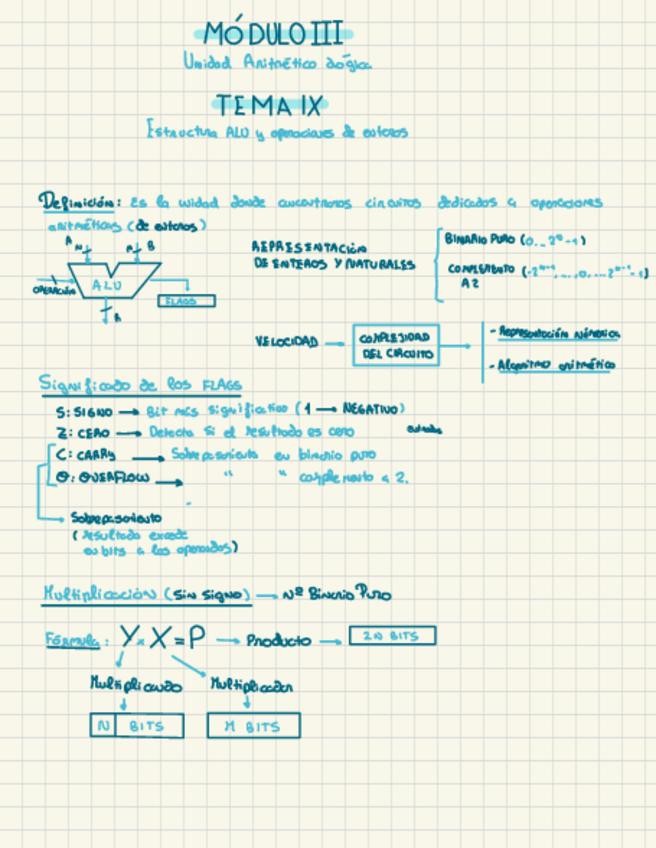 MÓDULO III
Unidad Aritmético Lógica
TEMA IX
Estructura ALU y operaciones de enteros
Definición: Es la unidad donde encontramos circuitos dedicados a operaciones
aritméticas (de enteros)
A N B
OPERACIÓN ALU
FLAGS
R
REPRESENTACIÓN
DE ENTEROS Y NATURALES
BINARIO PURO (0...2ⁿ-1)
COMPLEMENTO
A2
VELOCIDAD → COMPLEJIDAD
DEL CIRCUITO →
- Representación numérica
- Algoritmo aritmético
Significado de los FLAGS
S: SIGNO → Bit más significativo (1 → NEGATIVO)
Z: CERO → Detecta si el resultado es cero
C: CARRY → Sobrepasamiento en binario puro
O: OVERFLOW → " " complemento a 2.
Sobrepasamiento
(resultado excede
en bits a los operandos)
Multiplicación (sin signo) → Nº Binario Puro
Fórmula: Y × X = P → Producto → 2N BITS
Multiplicando Multiplicador
N BITS M BITS